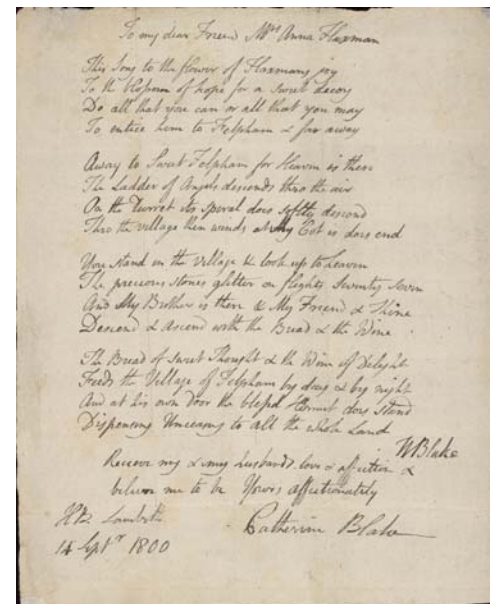 To my dear Friend Mrs Anna Flaxman
This Song to the flower of Flaxmans joy
To the blossom of hope for a sweet decoy
Do all that you can or all that you may
To entice him to Felpham & far away
Away to Sweet Felpham for Heaven is there
The Ladder of Angels descends thro the air
On the Turret its spiral does softly descend
Thro the village then winds at My Cot is does end
You stand in the village & look up to heaven
The precious stones glitter on flights seventy seven
And My Brother is there & My Friend & Thine
Descend & Ascend with the Bread & the Wine
The Bread of sweet Thought & the Wine of Delight
Feeds the Village of Felpham by day & by night
And at his own door the blessd Hermit does stand
Dispensing Unceasing to all the whole Land
W Blake
Receive my & my husbands love & affection &
believe me to be Yours affectionately
Catherine Blake
H B Lambeth
14 Septr 1800